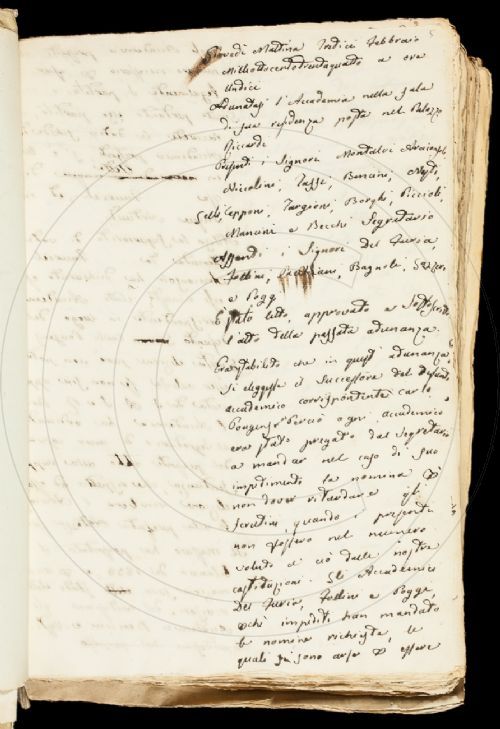 Giovedì Mattina Tredici Febbraio
Milleottocentotrentaquattro a ora
Undici
Adunatasi l'Accademia nella sala
di sua residenza posta nel Palazzo
Riccardi
Presenti i Signori Montalvi Arciconsolo
Niccolini, Tassi, Bencini, Nesti,
Gelli, Capponi, Targioni, Borghi, Piccioli,
Mancini e Becchi Segretario
Assenti i Signori Del Furia
Follini, Bagnoli,
e Poggi
È stato letto, approvato e sottoscritto
l'atto della passata adunanza.
Era stabilito che in questa adunanza
si eleggesse il successore del defunto
accademico corrispondente Carlo
Pougens. Perciò ogni accademico
era stato pregato dal Segretario
a mandar nel caso di suo
impedimento la nomina p
non dover ritardare gli
scrutini, quando i presenti
non fossero nel numero
voluto a ciò dalle nostre
costituzioni. Gli Accademici
Del Furia, Follini e Poggi,
p̱chè impediti han mandato
le nomine richieste, le
quali si sono arse p essere